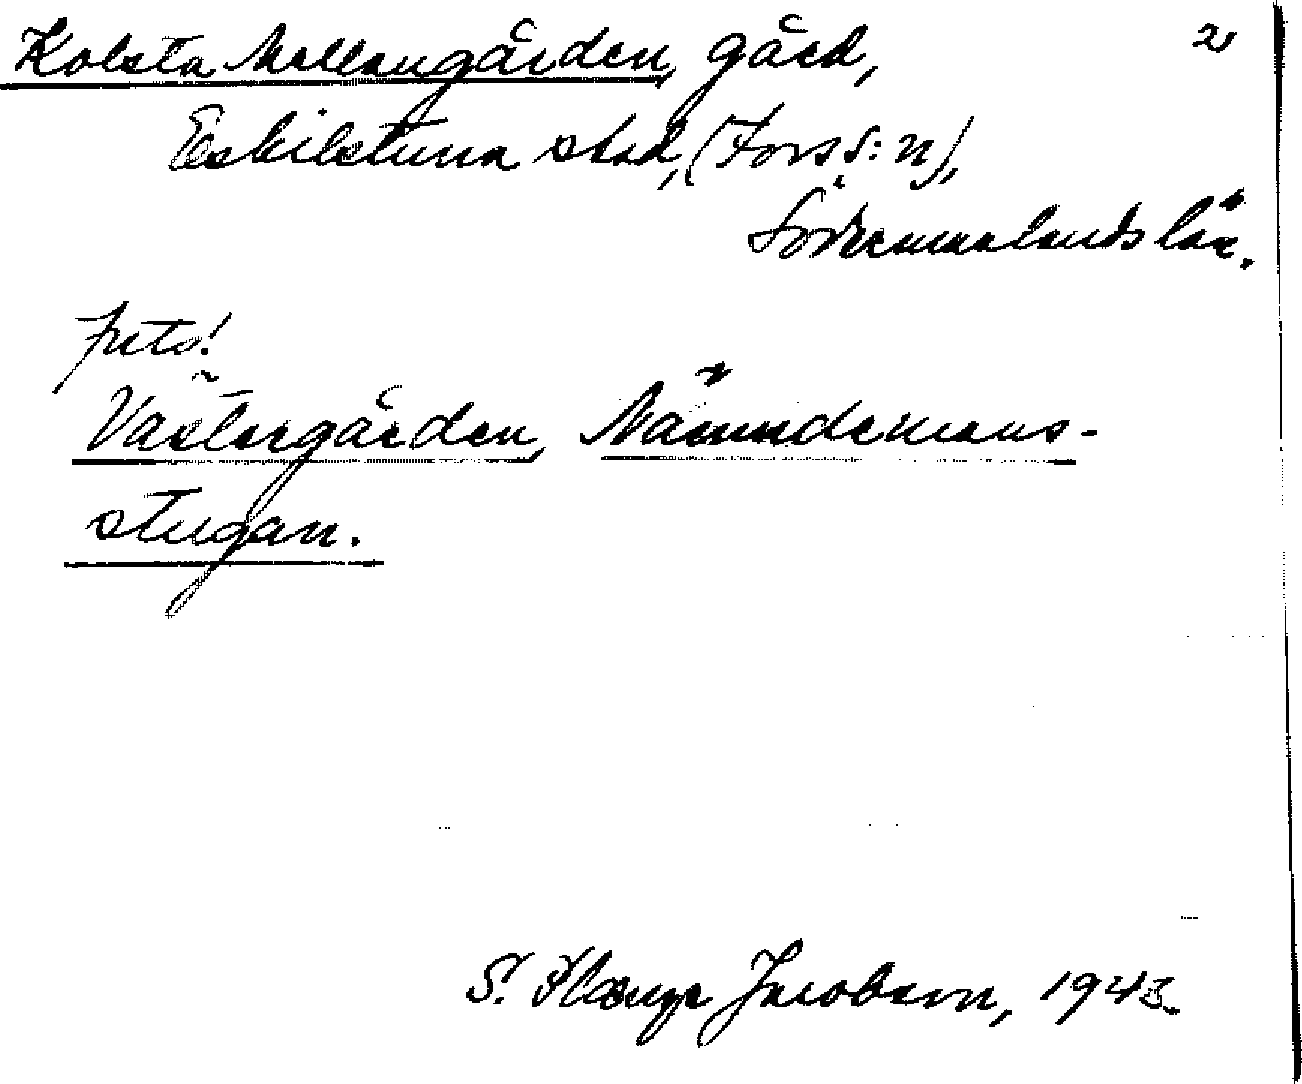 Kolsta Mellangården, gård, 2
Eskilstuna stad, (Fors s:n),
Södermanlands län.
foto!
Västergården, Nämndemans-
stugan.
S. Jacobson, 1943.